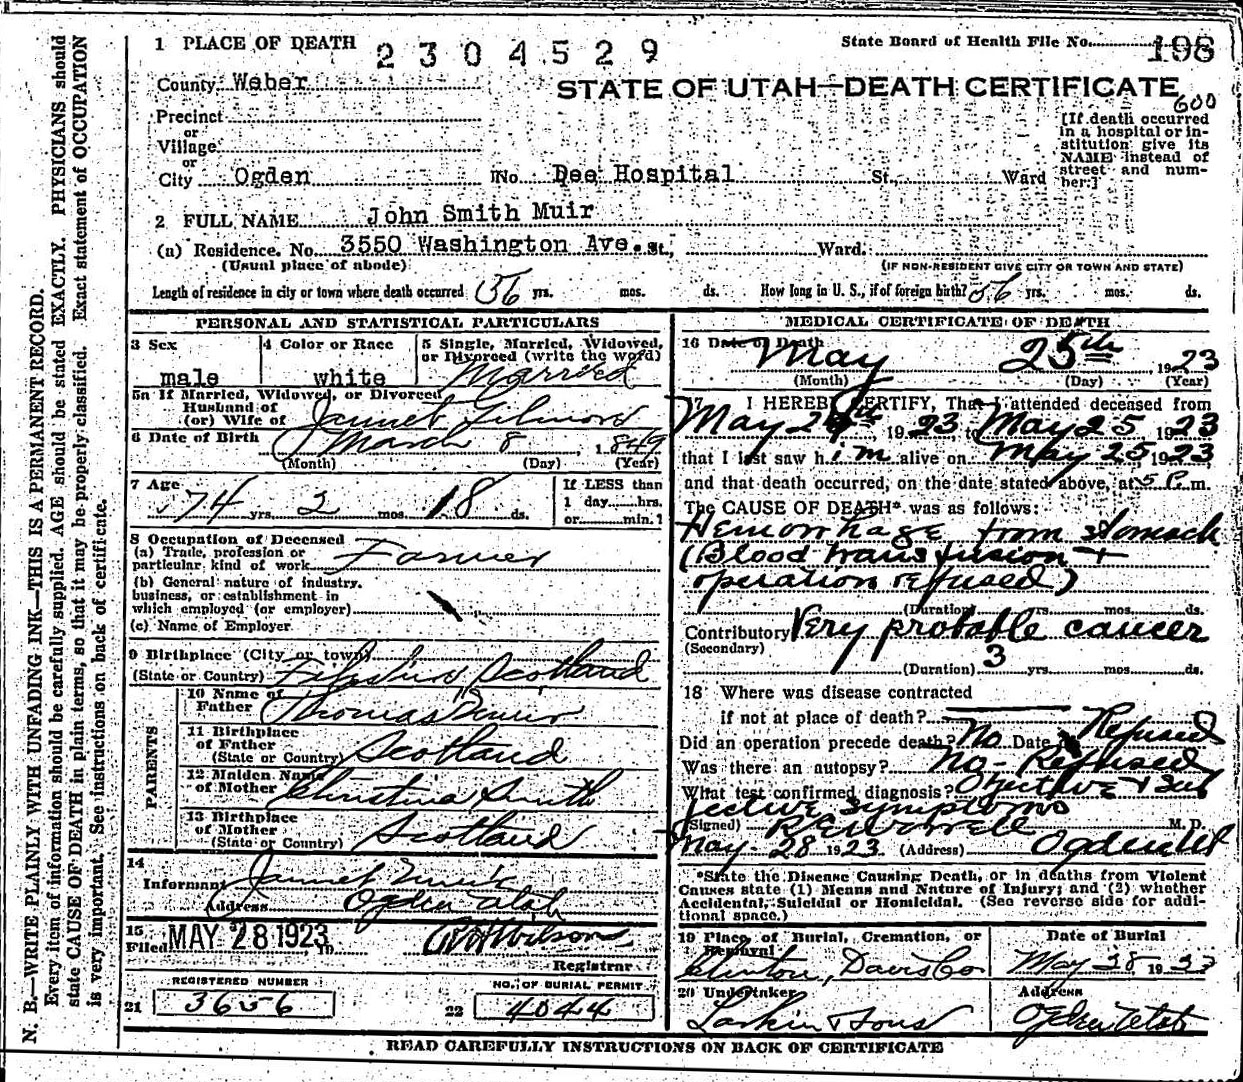 1 PLACE OF DEATH 2304529
State Board of Health File No. 198
County Weber
STATE OF UTAH—DEATH CERTIFICATE
600
Precinct
or
Village
or
City Ogden No. Dee Hospital St., Ward
[If death occurred
in a hospital or in-
stitution give its
NAME instead of
street and num-
ber.]
2 FULL NAME John Smith Muir
(a) Residence. No. 3550 Washington Ave. St., Ward.
(Usual place of abode) (IF NON-RESIDENT GIVE CITY OR TOWN AND STATE)
Length of residence in city or town where death occurred 56 yrs. mos. ds. How long in U. S., if of foreign birth? 56 yrs. mos. ds.
PERSONAL AND STATISTICAL PARTICULARS
3 Sex
male
4 Color or Race
white
5 Single, Married, Widowed,
or Divorced (write the word)
Married
5a If Married, Widowed, or Divorced
Husband of
(or) Wife of Jannet Gilmour
6 Date of Birth March 8, 1849
(Month) (Day) (Year)
7 Age
74 yrs. 2 mos. 18 ds.
If LESS than
1 day......hrs.
or......min.?
8 Occupation of Deceased
(a) Trade, profession or
particular kind of work Farmer
(b) General nature of industry,
business, or establishment in
which employed (or employer)
(c) Name of Employer
9 Birthplace (City or town)
(State or Country) Fifeshire Scotland
PARENTS
10 Name of
Father Thomas Muir
11 Birthplace
of Father
(State or Country) Scotland
12 Maiden Name
of Mother Christina Smith
13 Birthplace
of Mother
(State or Country) Scotland
14
Informant Jannet Muir
Address Ogden Utah
15
Filed MAY 28 1923, 19 Wilson
Registrar
REGISTERED NUMBER
21 3656
NO. OF BURIAL PERMIT
22 4044
MEDICAL CERTIFICATE OF DEATH
16 Date of Death
May 25th, 1923
(Month) (Day) (Year)
17 I HEREBY CERTIFY, That I attended deceased from
May 24th 1923, to May 25 1923
that I last saw him alive on May 25, 1923
and that death occurred, on the date stated above, at 5 P. m.
The CAUSE OF DEATH* was as follows:
Hemorrhage from stomach
(Blood transfusion +
operation refused)
(Duration) yrs. mos. ds.
Contributory Very probable cancer
(Secondary)
(Duration) 3 yrs. mos. ds.
18 Where was disease contracted
if not at place of death?
Did an operation precede death? No Date of Refused
Was there an autopsy? No - Refused
What test confirmed diagnosis? Objective + Sub
jective symptoms
(Signed) R E Worrell M. D.
May 28 1923 (Address) Ogden Ut
*State the Disease Causing Death, or in deaths from Violent
Causes state (1) Means and Nature of Injury; and (2) whether
Accidental, Suicidal or Homicidal. (See reverse side for addi-
tional space.)
19 Place of Burial, Cremation, or
Removal
Clinton, Davis Co
Date of Burial
May 28 1923
20 Undertaker
Larkin & Sons
Address
Ogden Utah
READ CAREFULLY INSTRUCTIONS ON BACK OF CERTIFICATE
N. B.—WRITE PLAINLY WITH UNFADING INK—THIS IS A PERMANENT RECORD.
Every item of information should be carefully supplied. AGE should be stated EXACTLY. PHYSICIANS should
state CAUSE OF DEATH in plain terms, so that it may be properly classified. Exact statement of OCCUPATION
is very important. See instructions on back of certificate.